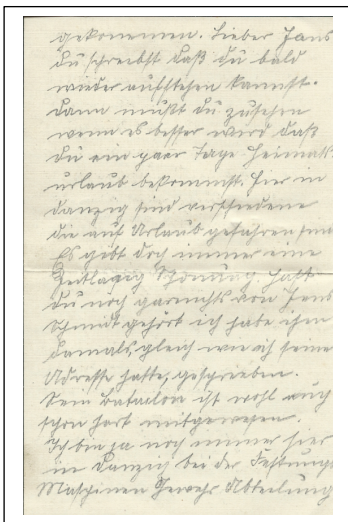 gekommen. Lieber Jens
du schreibst daß du bald
wieder aufstehen kannst.
Dann mußt du zusehen
wenn es besser wird daß
du ein paar Tage Heimats
urlaub bekommst. Hier in
Danzig sind verschiedene
die auf Urlaub gefahren sind
Es gibt doch immer eine
Zeitlang Schonung. Hast
du noch garnichts von Jens
Schmidt gehört ich habe ihm
damals, gleich wie ich seine
Adresse hatte, geschrieben.
Sein Bataelon ist wohl auch
schon dort mitgewesen.
Ich bin ja noch immer hier
in Danzig bei der Festungs
Maschinen Gewehr Abteilung